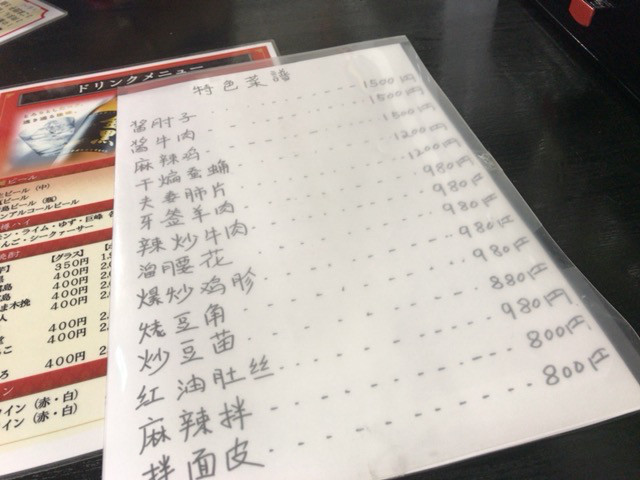 特色菜譜
酱肘子 1500円
酱牛肉 1500円
麻辣鸡 1500円
干煸蚕蛹 1200円
夫妻肺片 1200円
牙签羊肉 980円
辣炒牛肉 980円
溜腰花 980円
爆炒鸡胗 980円
烧豆角 980円
炒豆苗 880円
红油肚丝 980円
麻辣拌 800円
拌面皮 800円
ドリンクメニュー
ビール（中）
ビール（瓶）
ンアルコールビール
モン・ライム・ゆず・巨峰
んご・シークァーサー
[グラス]
350円
400円
400円
400円
400円
400円
400円
400円
イン（赤・白）
イン（赤・白）